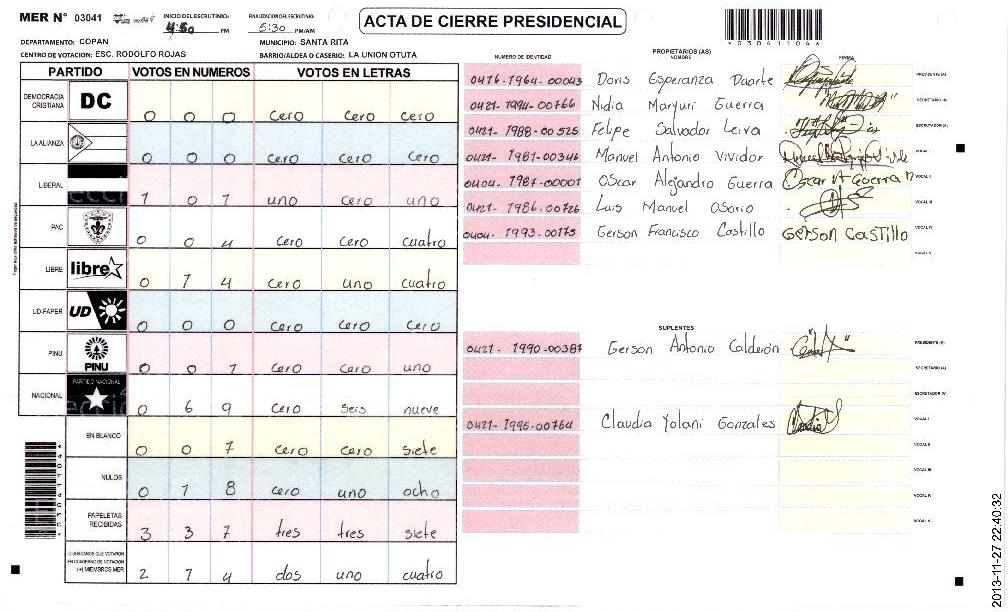 MER N° 03041 INICIO DEL ESCRUTINIO: 4:50 PM FINALIZACION DEL ESCRUTINIO: 5:30 PM/AM ACTA DE CIERRE PRESIDENCIAL *03041104*
DEPARTAMENTO: COPAN MUNICIPIO: SANTA RITA
CENTRO DE VOTACION: ESC. RODOLFO ROJAS BARRIO/ALDEA O CASERIO: LA UNION OTUTA
PARTIDO VOTOS EN NUMEROS VOTOS EN LETRAS
DEMOCRACIA CRISTIANA DC 0 0 0 cero cero cero
LA ALIANZA 0 0 0 cero cero cero
LIBERAL 1 0 1 uno cero uno
PAC 0 0 4 cero cero cuatro
LIBRE libre 0 1 4 cero uno cuatro
UD-FAPER UD 0 0 0 cero cero cero
PINU PINU 0 0 1 cero cero uno
NACIONAL PARTIDO NACIONAL 0 6 9 cero seis nueve
EN BLANCO 0 0 7 cero cero siete
NULOS 0 1 8 cero uno ocho
PAPELETAS RECIBIDAS 3 3 7 tres tres siete
CIUDADANOS QUE VOTARON EN CUADERNO DE VOTACION (+) MIEMBROS MER 2 1 4 dos uno cuatro
PROPIETARIOS (AS)
NUMERO DE IDENTIDAD NOMBRE FIRMA
0416-1964-00043 Doris Esperanza Duarte PRESIDENTE (A)
0421-1994-00766 Nidia Maryuri Guerra SECRETARIO (A)
0421-1988-00525 Felipe Salvador Leiva ESCRUTADOR (A)
0421-1981-00346 Manuel Antonio Vividor VOCAL I
0404-1987-00001 Oscar Alejandro Guerra Oscar A Guerra VOCAL II
0421-1986-00726 Luis Manuel Osorio VOCAL III
0404-1993-00173 Gerson Francisco Castillo GERSON CASTILLO VOCAL IV
VOCAL V
SUPLENTES
0421-1990-00387 Gerson Antonio Calderón PRESIDENTE (A)
SECRETARIO (A)
ESCRUTADOR (A)
0421-1995-00764 Claudia Yolani Gonzales VOCAL I
VOCAL II
VOCAL III
VOCAL IV
VOCAL V
2013-11-27 22:40:32